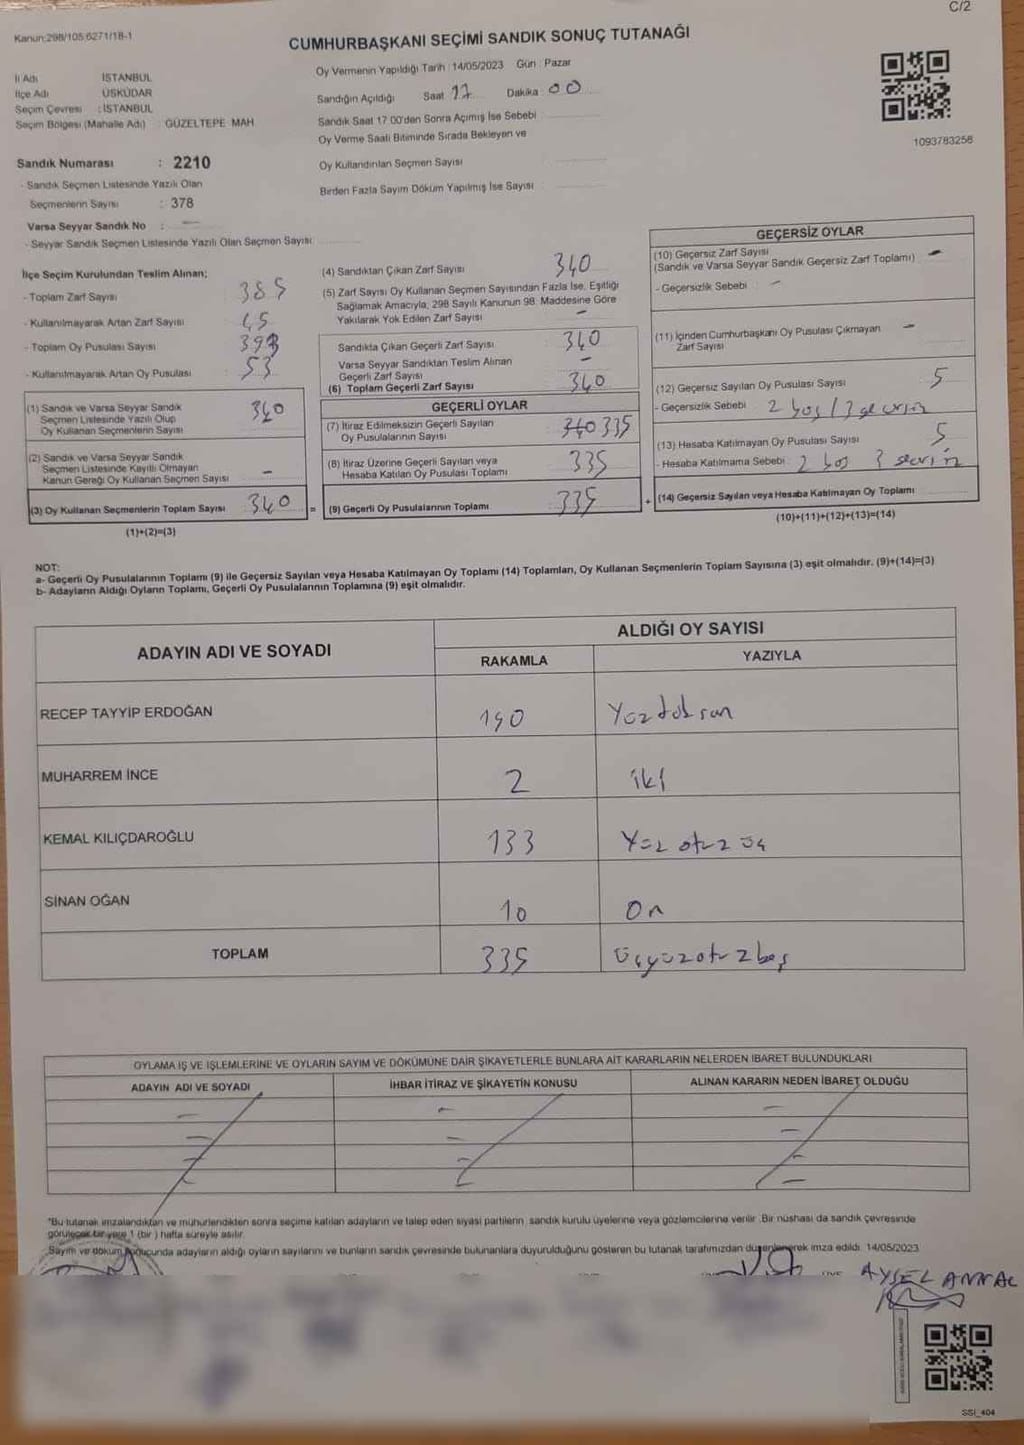 C/2
Kanun:298/105 6271/18-1
CUMHURBAŞKANI SEÇİMİ SANDIK SONUÇ TUTANAĞI
İl Adı : İSTANBUL
İlçe Adı : ÜSKÜDAR
Seçim Çevresi : İSTANBUL
Seçim Bölgesi (Mahalle Adı) : GÜZELTEPE MAH
Sandık Numarası : 2210
- Sandık Seçmen Listesinde Yazılı Olan
Seçmenlerin Sayısı : 378
Varsa Seyyar Sandık No :
- Seyyar Sandık Seçmen Listesinde Yazılı Olan Seçmen Sayısı:
Oy Vermenin Yapıldığı Tarih : 14/05/2023 Gün : Pazar
Sandığın Açıldığı Saat 17 Dakika : 00
Sandık Saat 17.00'den Sonra Açımış İse Sebebi
Oy Verme Saati Bitiminde Sırada Bekleyen ve
Oy Kullandırılan Seçmen Sayısı
Birden Fazla Sayım Döküm Yapılmış İse Sayısı
1093783258
İlçe Seçim Kurulundan Teslim Alınan;
- Toplam Zarf Sayısı 385
- Kullanılmayarak Artan Zarf Sayısı 45
- Toplam Oy Pusulası Sayısı 393
- Kullanılmayarak Artan Oy Pusulası 53
(1) Sandık ve Varsa Seyyar Sandık
Seçmen Listesinde Yazılı Olup
Oy Kullanan Seçmenlerin Sayısı 340
(2) Sandık ve Varsa Seyyar Sandık
Seçmen Listesinde Kayıtlı Olmayan
Kanun Gereği Oy Kullanan Seçmen Sayısı -
(3) Oy Kullanan Seçmenlerin Toplam Sayısı 340
(1)+(2)=(3)
(4) Sandıktan Çıkan Zarf Sayısı 340
(5) Zarf Sayısı Oy Kullanan Seçmen Sayısından Fazla İse, Eşitliği
Sağlamak Amacıyla, 298 Sayılı Kanunun 98. Maddesine Göre
Yakılarak Yok Edilen Zarf Sayısı -
Sandıkta Çıkan Geçerli Zarf Sayısı 340
Varsa Seyyar Sandıktan Teslim Alınan
Geçerli Zarf Sayısı -
(6) Toplam Geçerli Zarf Sayısı 340
GEÇERLİ OYLAR
(7) İtiraz Edilmeksizin Geçerli Sayılan
Oy Pusulalarının Sayısı 340 335
(8) İtiraz Üzerine Geçerli Sayılan veya
Hesaba Katılan Oy Pusulası Toplamı 335
= (9) Geçerli Oy Pusulalarının Toplamı 335
GEÇERSİZ OYLAR
(10) Geçersiz Zarf Sayısı -
(Sandık ve Varsa Seyyar Sandık Geçersiz Zarf Toplamı)
- Geçersizlik Sebebi : -
(11) İçinden Cumhurbaşkanı Oy Pusulası Çıkmayan -
Zarf Sayısı
(12) Geçersiz Sayılan Oy Pusulası Sayısı 5
- Geçersizlik Sebebi : 2 boş / 3 geçersiz
(13) Hesaba Katılmayan Oy Pusulası Sayısı 5
- Hesaba Katılmama Sebebi : 2 boş 3
+ (14) Geçersiz Sayılan veya Hesaba Katılmayan Oy Toplamı
(10)+(11)+(12)+(13)=(14)
NOT:
a- Geçerli Oy Pusulalarının Toplamı (9) ile Geçersiz Sayılan veya Hesaba Katılmayan Oy Toplamı (14) Toplamları, Oy Kullanan Seçmenlerin Toplam Sayısına (3) eşit olmalıdır. (9)+(14)=(3)
b- Adayların Aldığı Oyların Toplamı, Geçerli Oy Pusulalarının Toplamına (9) eşit olmalıdır.
ADAYIN ADI VE SOYADI
ALDIĞI OY SAYISI
RAKAMLA YAZIYLA
RECEP TAYYİP ERDOĞAN 190 Yüzdoksan
MUHARREM İNCE 2 iki
KEMAL KILIÇDAROĞLU 133 Yüz otuz üç
SİNAN OĞAN 10 On
TOPLAM 335 Üçyüzotuzbeş
OYLAMA İŞ VE İŞLEMLERİNE VE OYLARIN SAYIM VE DÖKÜMÜNE DAİR ŞİKAYETLERLE BUNLARA AİT KARARLARIN NELERDEN İBARET BULUNDUKLARI
ADAYIN ADI VE SOYADI İHBAR İTİRAZ VE ŞİKAYETİN KONUSU ALINAN KARARIN NEDEN İBARET OLDUĞU
*Bu tutanak imzalandıktan ve mühürlendikten sonra seçime katılan adayların ve talep eden siyasi partilerin sandık kurulu üyelerine veya gözlemcilerine verilir. Bir nüshası da sandık çevresinde
görülecek bir yere 1 (bir) hafta süreyle asılır.
Sayım ve döküm sonucunda adayların aldığı oyların sayılarını ve bunların sandık çevresinde bulunanlara duyurulduğunu gösteren bu tutanak tarafımızdan düzenlenerek imza edildi. 14/05/2023
AYSEL
SSI_404